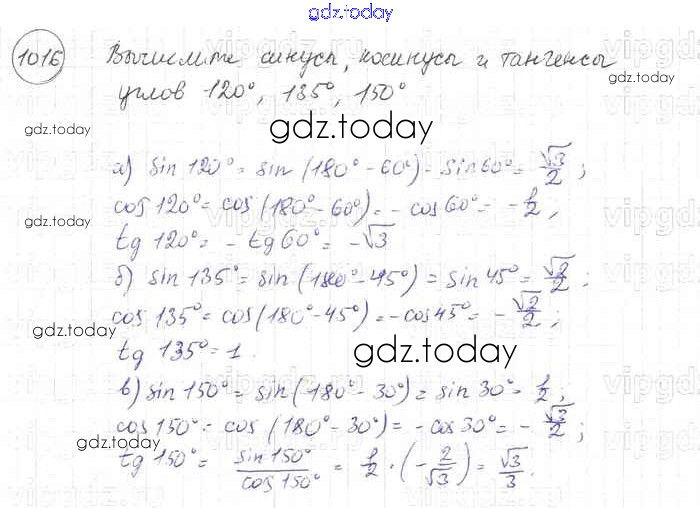 gdz.today
1016 Вычислите синусы, косинусы и тангенсы
углов 120°, 135°, 150°
gdz.today
gdz.today
а) sin 120° = sin (180° - 60°) = sin 60° = √3/2 ;
cos 120° = cos (180° - 60°) = - cos 60° = - 1/2 ,
gdz.today
tg 120° = - tg 60° = - √3
б) sin 135° = sin (180° - 45°) = sin 45° = √2/2 ;
cos 135° = cos (180° - 45°) = - cos 45° = - √2/2 ;
gdz.today
tg 135° = 1 .
gdz.today
в) sin 150° = sin (180° - 30°) = sin 30° = 1/2 ;
cos 150° = cos (180° - 30°) = - cos 30° = - √3/2 ;
gdz.today
tg 150° = sin 150°/cos 150° = 1/2 · (- 2/√3) = √3/3 .
gdz.today